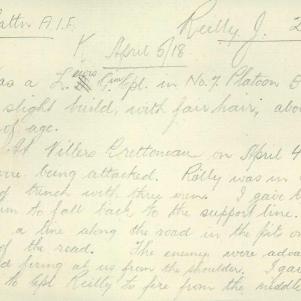 Battn A.I.F. Reilly J. 2
K. April 5/18
as a Lewis Gun Cpl. in No. 7. Platoon B
slight build, with fair hair, abou
of age.
At Villers Brettoneau on April 4
ere being attacked. Reilly was in
of trench with three men. I gave t
im to fall back to the support line.
a line along the road in the pits on
of the road. The enemy were advan
d firing at us from the shoulder. I gav
to Cpl Reilly to fire from the middle